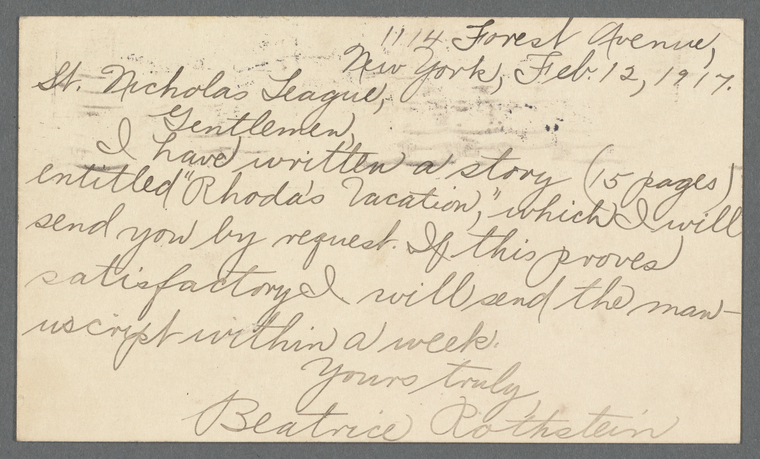 1114 Forest Avenue,
New York, Feb. 12, 1917.
St. Nicholas League,
Gentlemen,
I have written a story (15 pages)
entitled "Rhoda's Vacation," which I will
send you by request. If this proves
satisfactory I will send the man-
uscript within a week.
Yours truly,
Beatrice Rothstein